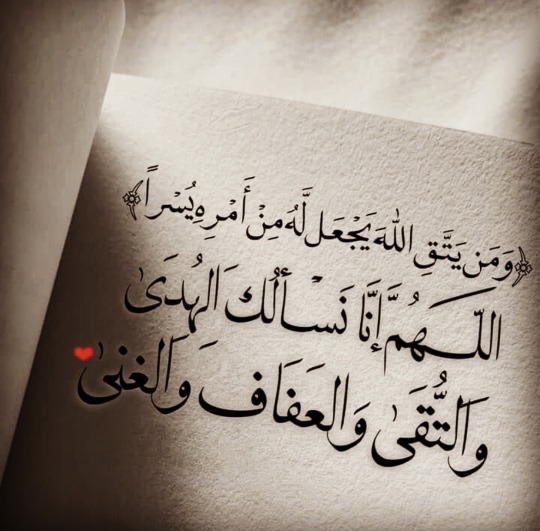 ﴿وَمَن يَتَّقِ اللهَ يَجْعَل لَّهُ مِنْ أَمْرِهِ يُسْراً﴾
اللّـهُمَّ إنَّا نَسْألُك الهُدَىٰ
وَالتُّقَىٰ وَالعَفَاف وَالغنىٰ